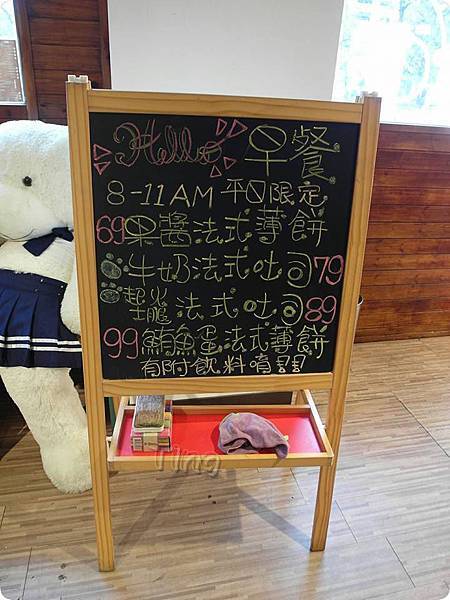 Hello 早餐
8-11AM 平日限定
69果醬法式薄餅
牛奶法式吐司79
起士火腿法式吐司89
99鮪魚蛋法式薄餅
有附飲料唷
Ting